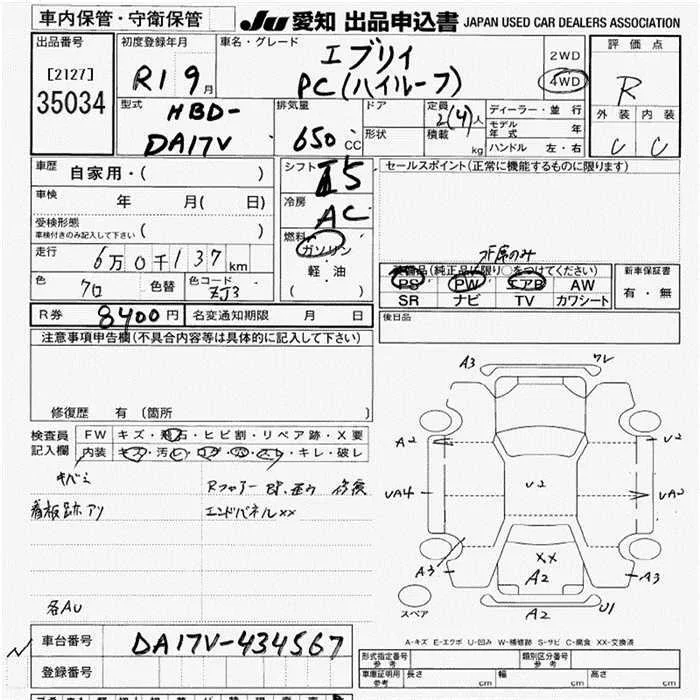 車内保管・守衛保管
JU 愛知 出品申込書 JAPAN USED CAR DEALERS ASSOCIATION
出品番号
[2127]
35034
初度登録年月
R1 9月
車名・グレード
エブリイ
PC(ハイルーフ)
2WD
4WD
評価点
R
外装 内装
C C
型式
HBD-
DA17V
排気量
650 CC
ドア
形状
定員 2(4)人
積載 kg
ディーラー・並行
モデル年式 年
ハンドル 左・右
車歴 自家用・( )
車検 年 月( 日)
受検形態
車検付きのみ記入して下さい ( )
走行 6万0千137km
色 クロ 色替 色コード ZJ3
シフト 5
冷房 AC
燃料
ガソリン
軽油
( )
セールスポイント(正常に機能するものに限ります)
PS PW エアB AW
SR ナビ TV カワシート
新車保証書
有・無
後日品
R券 8400円 名変通知期限 月 日
注意事項申告欄(不具合内容等は具体的に記入して下さい)
修復歴 有 (箇所 )
検査員記入欄
FW キズ・飛石・ヒビ割・リペア跡・X要
内装 キズ・汚レ・コゲ・穴・スレ・キレ・破レ
キバミ
看板跡アリ
エンドパネルxx
各AU
A3
ワレ
A2
U2
UA4
U2
UA2
A3
A3
XX
A2
A2
U1
スペア
A-キズ E-エクボ U-凹み W-補修跡 S-サビ C-腐食 XX-交換済
車台番号 DA17V-434567
登録番号
形式指定番号 参考
類別区分番号 参考
車庫証明用 参考 長さ cm 幅 cm 高さ cm